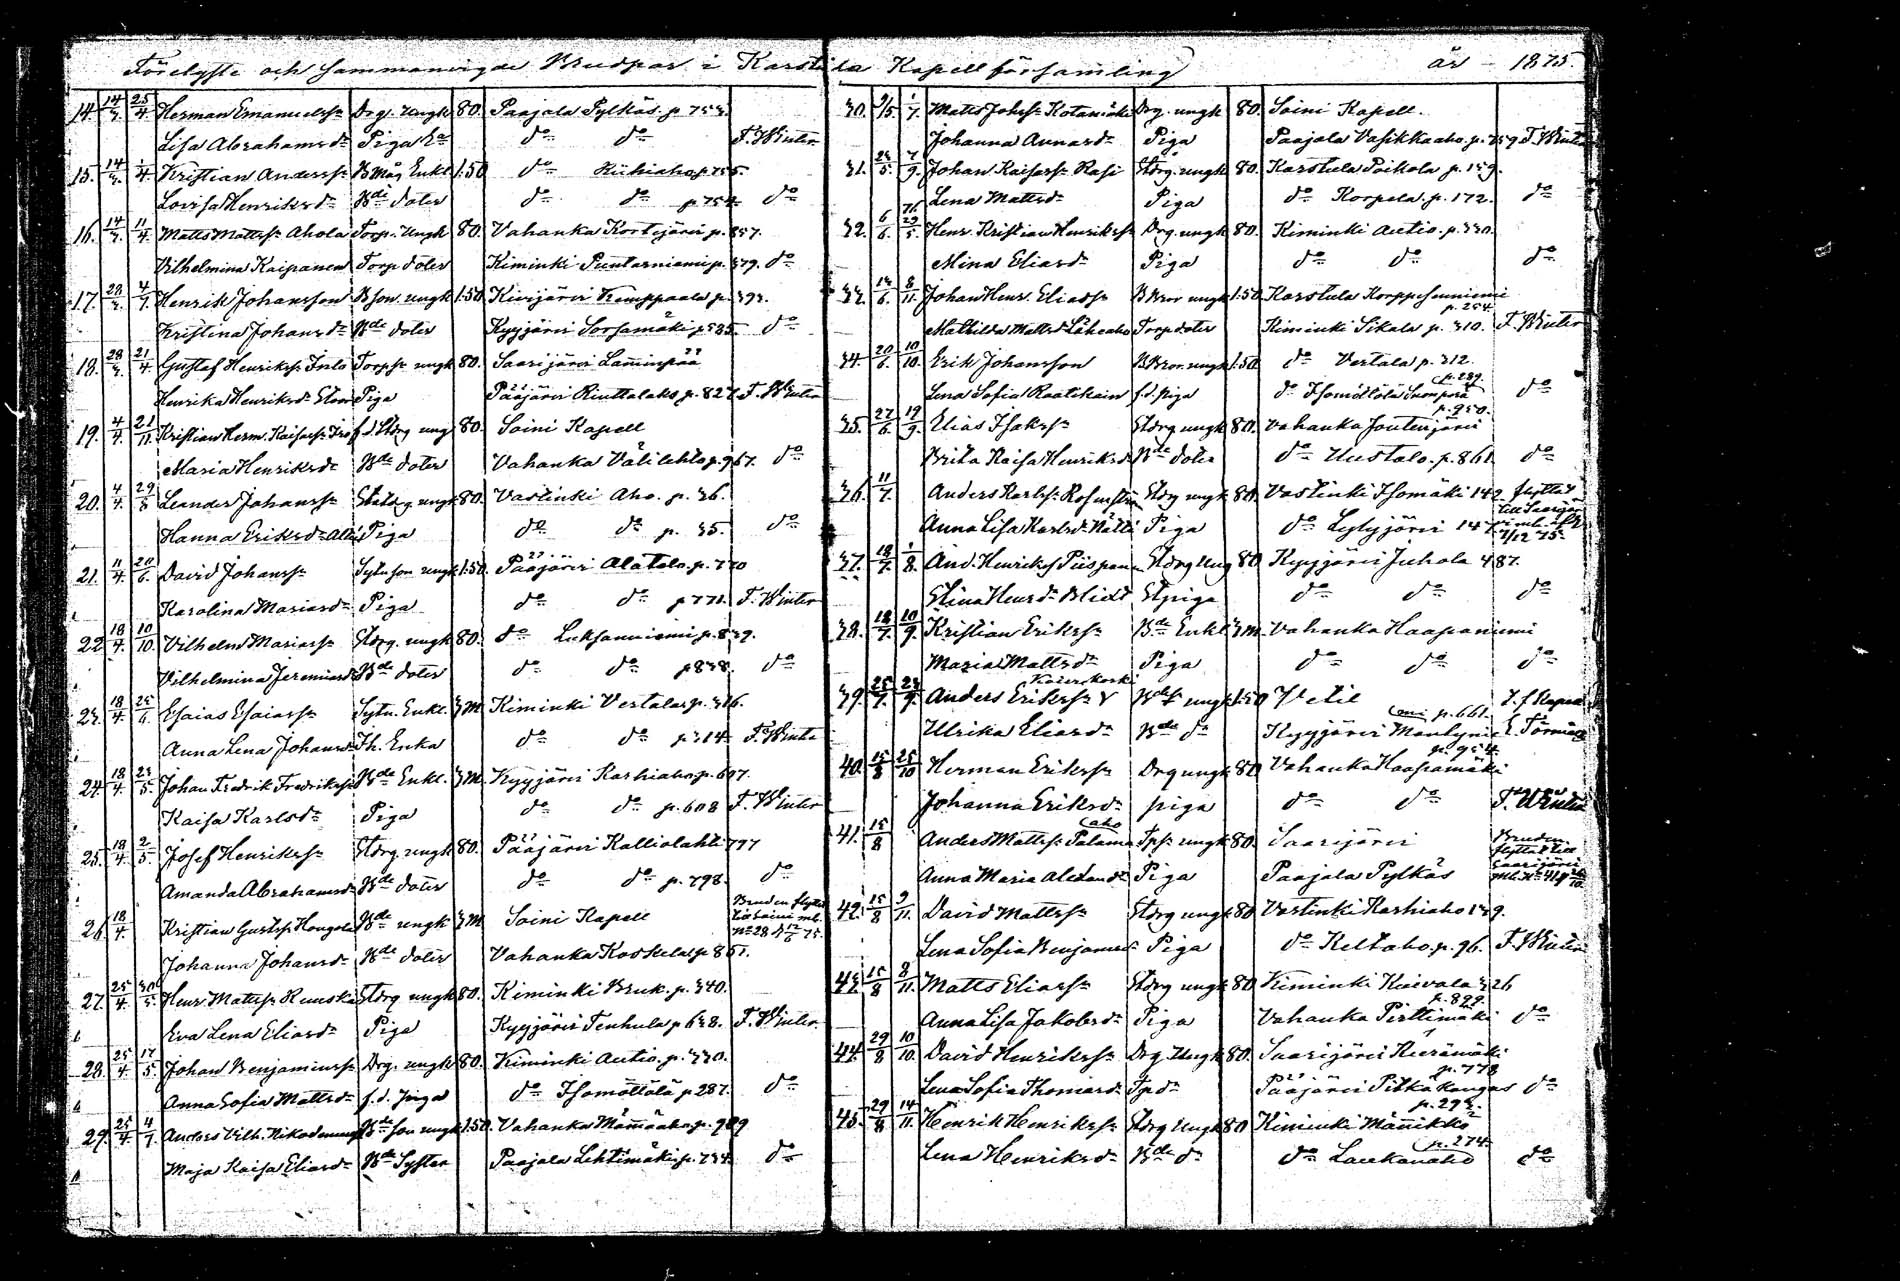 Förelyste och Sammanvigde Brudpar i Karstula Kapellförsamling år 1875.
14. 14/3. 25/4. Herman Emanuelss. Drg. Ungk 80. Paajala Pylkäs. p. 753.
Lisa Abrahamsd. Piga do do F. Winter
15. 14/3. 1/4. Kristian Anderss. Enkl. 1.50 do Riihiaho p. 755.
Lovisa Henriksd. Bde doter do do p. 754. do
16. 14/3. 11/4. Matts Mattss. Ahola Torp. Ungk 80. Vahanka Kortejärvi p. 857.
Vilhelmina Kaipanen Torp doter Kiminki Puntarniemi p. 379. do
17. 28/3. 4/7. Henrik Johansson B son ungk 1.50 Kivijärvi Kemppaala p. 393.
Kristina Johansd. Bde doter Kyyjärvi Sorsamäki p. 585. do
18. 28/3. 21/4. Gustaf Henrikss. Torps. ungk 80. Saarijärvi Lamminpää
Henrika Henriksd. Piga Pääjärvi Riuttalaks p. 827. F. Winter
19. 4/4. 21/11. Kristian Herm. Kaisass. f.d. Stdrg ung 80. Soini Kapell
Maria Henriksd. Bde doter Vahanka Välilehto p. 967. do
20. 4/4. 29/8 Leander Johanss. Stdrg. ungk 80. Vastinki Aho. p. 36.
Hanna Eriksd. Piga do do p. 35. do
21. 11/4. 20/6. David Johanss. Sytn. son ungk 1.50. Pääjärvi Alatalo. p. 770
Karolina Mariasd. Piga do do p. 771. F. Winter
22 18/4. 10/10. Vilhelm Mariass. Stdrg. ungk 80. do Luksanniemi p. 839.
Vilhelmina Jeremiasd. Bde doter do do p. 838. do
23. 18/4. 25/6. Esaias Esaiass. Sytn. Enkl. 3 M. Kiminki Vertala p. 316.
Anna Lena Johansd. Th. Enka do do p. 314. F. Winter
24. 18/4. 23/5. Johan Fredrik Fredrikss. Bde Enkl. 3 M. Kyyjärvi Karhiaho p. 607.
Kaisa Karlsd. Piga do do p. 608 F. Winter
25. 18/4. 2/5. Josef Henrikss. Stdrg. ungk 80. Pääjärvi Kalliolahti 797
Amanda Abrahamsd. Bde doter do do p. 798. do
26. 18/4. Kristian Gustss. Bde ungk 3 M Soini Kapell Bruden flytta till Soini mb. No 28 12/6 75.
Johanna Johansd. Bde doter Vahanka Koskela p. 861.
27. 25/4. 30/5. Henr. Mattss. Ruuska Stdrg ungk 80. Kiminki Bruk. p. 340.
Eva Lena Eliasd. Piga Kyyjärvi Tenhula p. 638. F. Winter
28. 25/4. 17/5. Johan Benjaminss. Drg. ungk 80. Kiminki Autio. p. 330.
Anna Sofia Mattsd. f.d. Piga do Isomöttölä p. 287. do
29. 25/4. 4/7. Anders Vilh. Nikodemuss. Bde son ungk 1.50. Vahanka Mämmäaho p. 909
Maja Kaisa Eliasd. Bde Syster Paajala Lehtimäki p. 734. do
30. 9/5. 1/7. Matts Johss. Kotamäki Drg. ungk 80. Soini Kapell.
Johanna Annasd. Piga Paajala Vasikkaaho. p. 759 F. Winter
31. 23/5. 7/9. Johan Kaisass. Rasi Stdrg. ungk 80. Karstula Poikola p. 159.
Lena Mattsd. Piga do Korpela p. 172. do
32. 6/6. 76 29/5. Henr. Kristian Henrikss. Drg. ungk 80. Kiminki Autio. p. 330.
Mina Eliasd. Piga do do do
33. 13/6. 8/11. Johan Henr. Eliass. B Bror ungk 1.50. Karstula Korppisenniemi p. 254.
Mathilda Mattsd. Läheaho Torp doter Kiminki Sikala p. 310. F. Winter
34. 20/6. 10/10. Erik Johansson B Bror. ungk 1.50. do Vertala p. 312.
Lena Sofia Raatikain f.d. piga do Isomöttölä p. 289 do
35. 27/6. 19/9. Elias Isakss. Stdrg ungk 80. Vahanka Joutenjärvi p. 950.
Brita Kaisa Henriksd. Bde doter do Uustalo. p. 861. do
36. 11/7. Anders Karlss. Rosenström Stdrg ungk 80. Vastinki Isomäki 142 flyttat till Saarijärvi
Anna Lisa Karlsd. Piga do Lylyjärvi 147. 7/12 75.
37. 18/7. 1/8. And. Henrikss. Piispanen Stdrg Ung 80 Kyyjärvi Juhola 487.
Stina Henrsd. Stpiga do do do
38. 18/7. 10/9. Kristian Erikss. Bde Enkl. 3 M. Vahanka Haapaniemi
Maria Mattsd. Piga do do do
39. 25/7. 23/9. Anders Erikss. Bdes. ungk 1.50 Vetil
Ulrika Eliasd. Bde do Kyyjärvi p. 661. E. Törmälä
40. 15/8 25/10 Herman Erikss. Drg ungk 80 Vahanka Haapamäki p. 954.
Johanna Eriksd. piga do do F. Winter
41. 15/8 Anders Mattss. Palama(aho Tps. ungk 80. Saarijärvi Bruden flyttat till Saarijärvi
Anna Maria Alexand. Piga Paajala Pylkäs
42. 15/8 9/11. David Mattss. Stdrg ungk 80 Vastinki Karhiaho 139.
Lena Sofia Benjamsd. Piga do Keltaho. p. 96. F. Winter
43. 15/8 8/11. Matts Eliass. Stdrg ungk 80 Kiminki Kaivala 326
Anna Lisa Jakobsd. Piga Vahanka Pirttimäki p. 899. do
44. 29/8 10/10. David Henrikss. Drg Ungk 80. Saarijärvi
Lena Sofia Thomasd. Tp d. Pääjärvi Pitkäkangas p. 778 do
45. 29/8 14/11. Henrik Henrikss. Stdrg Ungk 80 Kiminki Männikkö p. 293.
Lena Henriksd. Bde d. do Laukanaho p. 274. do